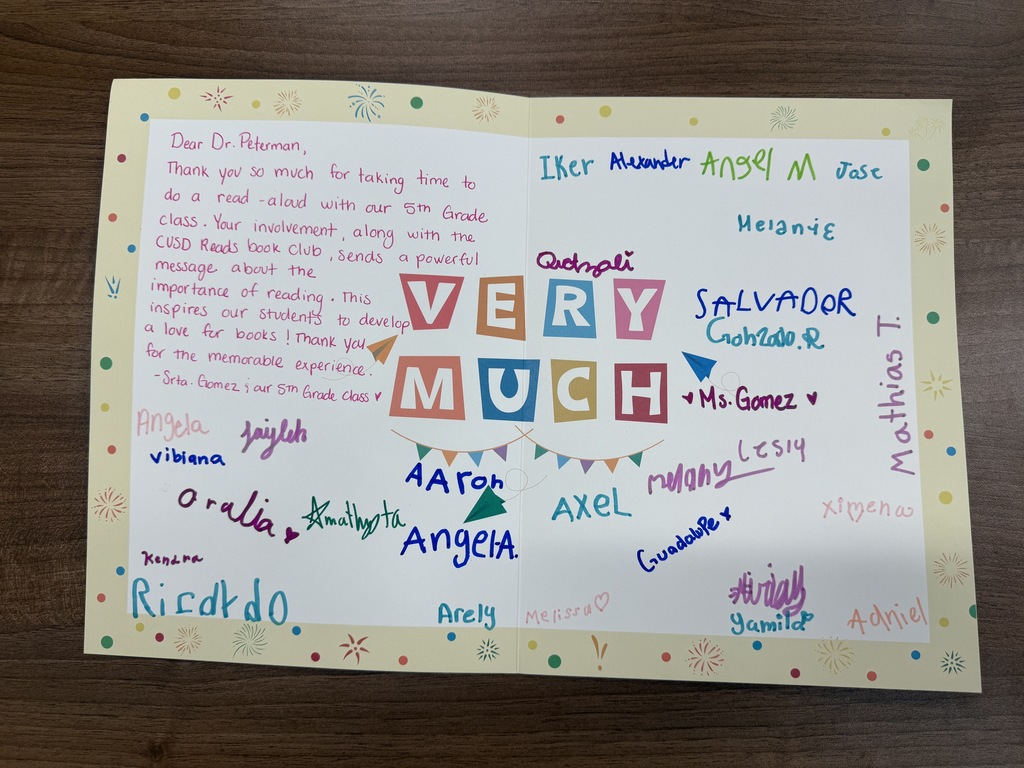 Dear Dr. Peterman,
Thank you so much for taking time to
do a read-aloud with our 5th Grade
class. Your involvement, along with the
CUSD Reads book club, sends a powerful
message about the
importance of reading. This
inspires our students to develop
a love for books! Thank you
for the memorable experience.
-Srta. Gomez & our 5th Grade class ♥
VERY
MUCH
Iker Alexander Angel M Jose
Melanie
SALVADOR
Gonzalo.R
Mathias T.
♥ Ms. Gomez ♥
Angela
Jayleh
vibiana
AAron
melany
Lesly
oralia ♥
AXEL
ximena
Angel.A.
Guadalupe ♥
Kendra
Ricardo
Arely
Melissa ♡
Yamila
Adriel